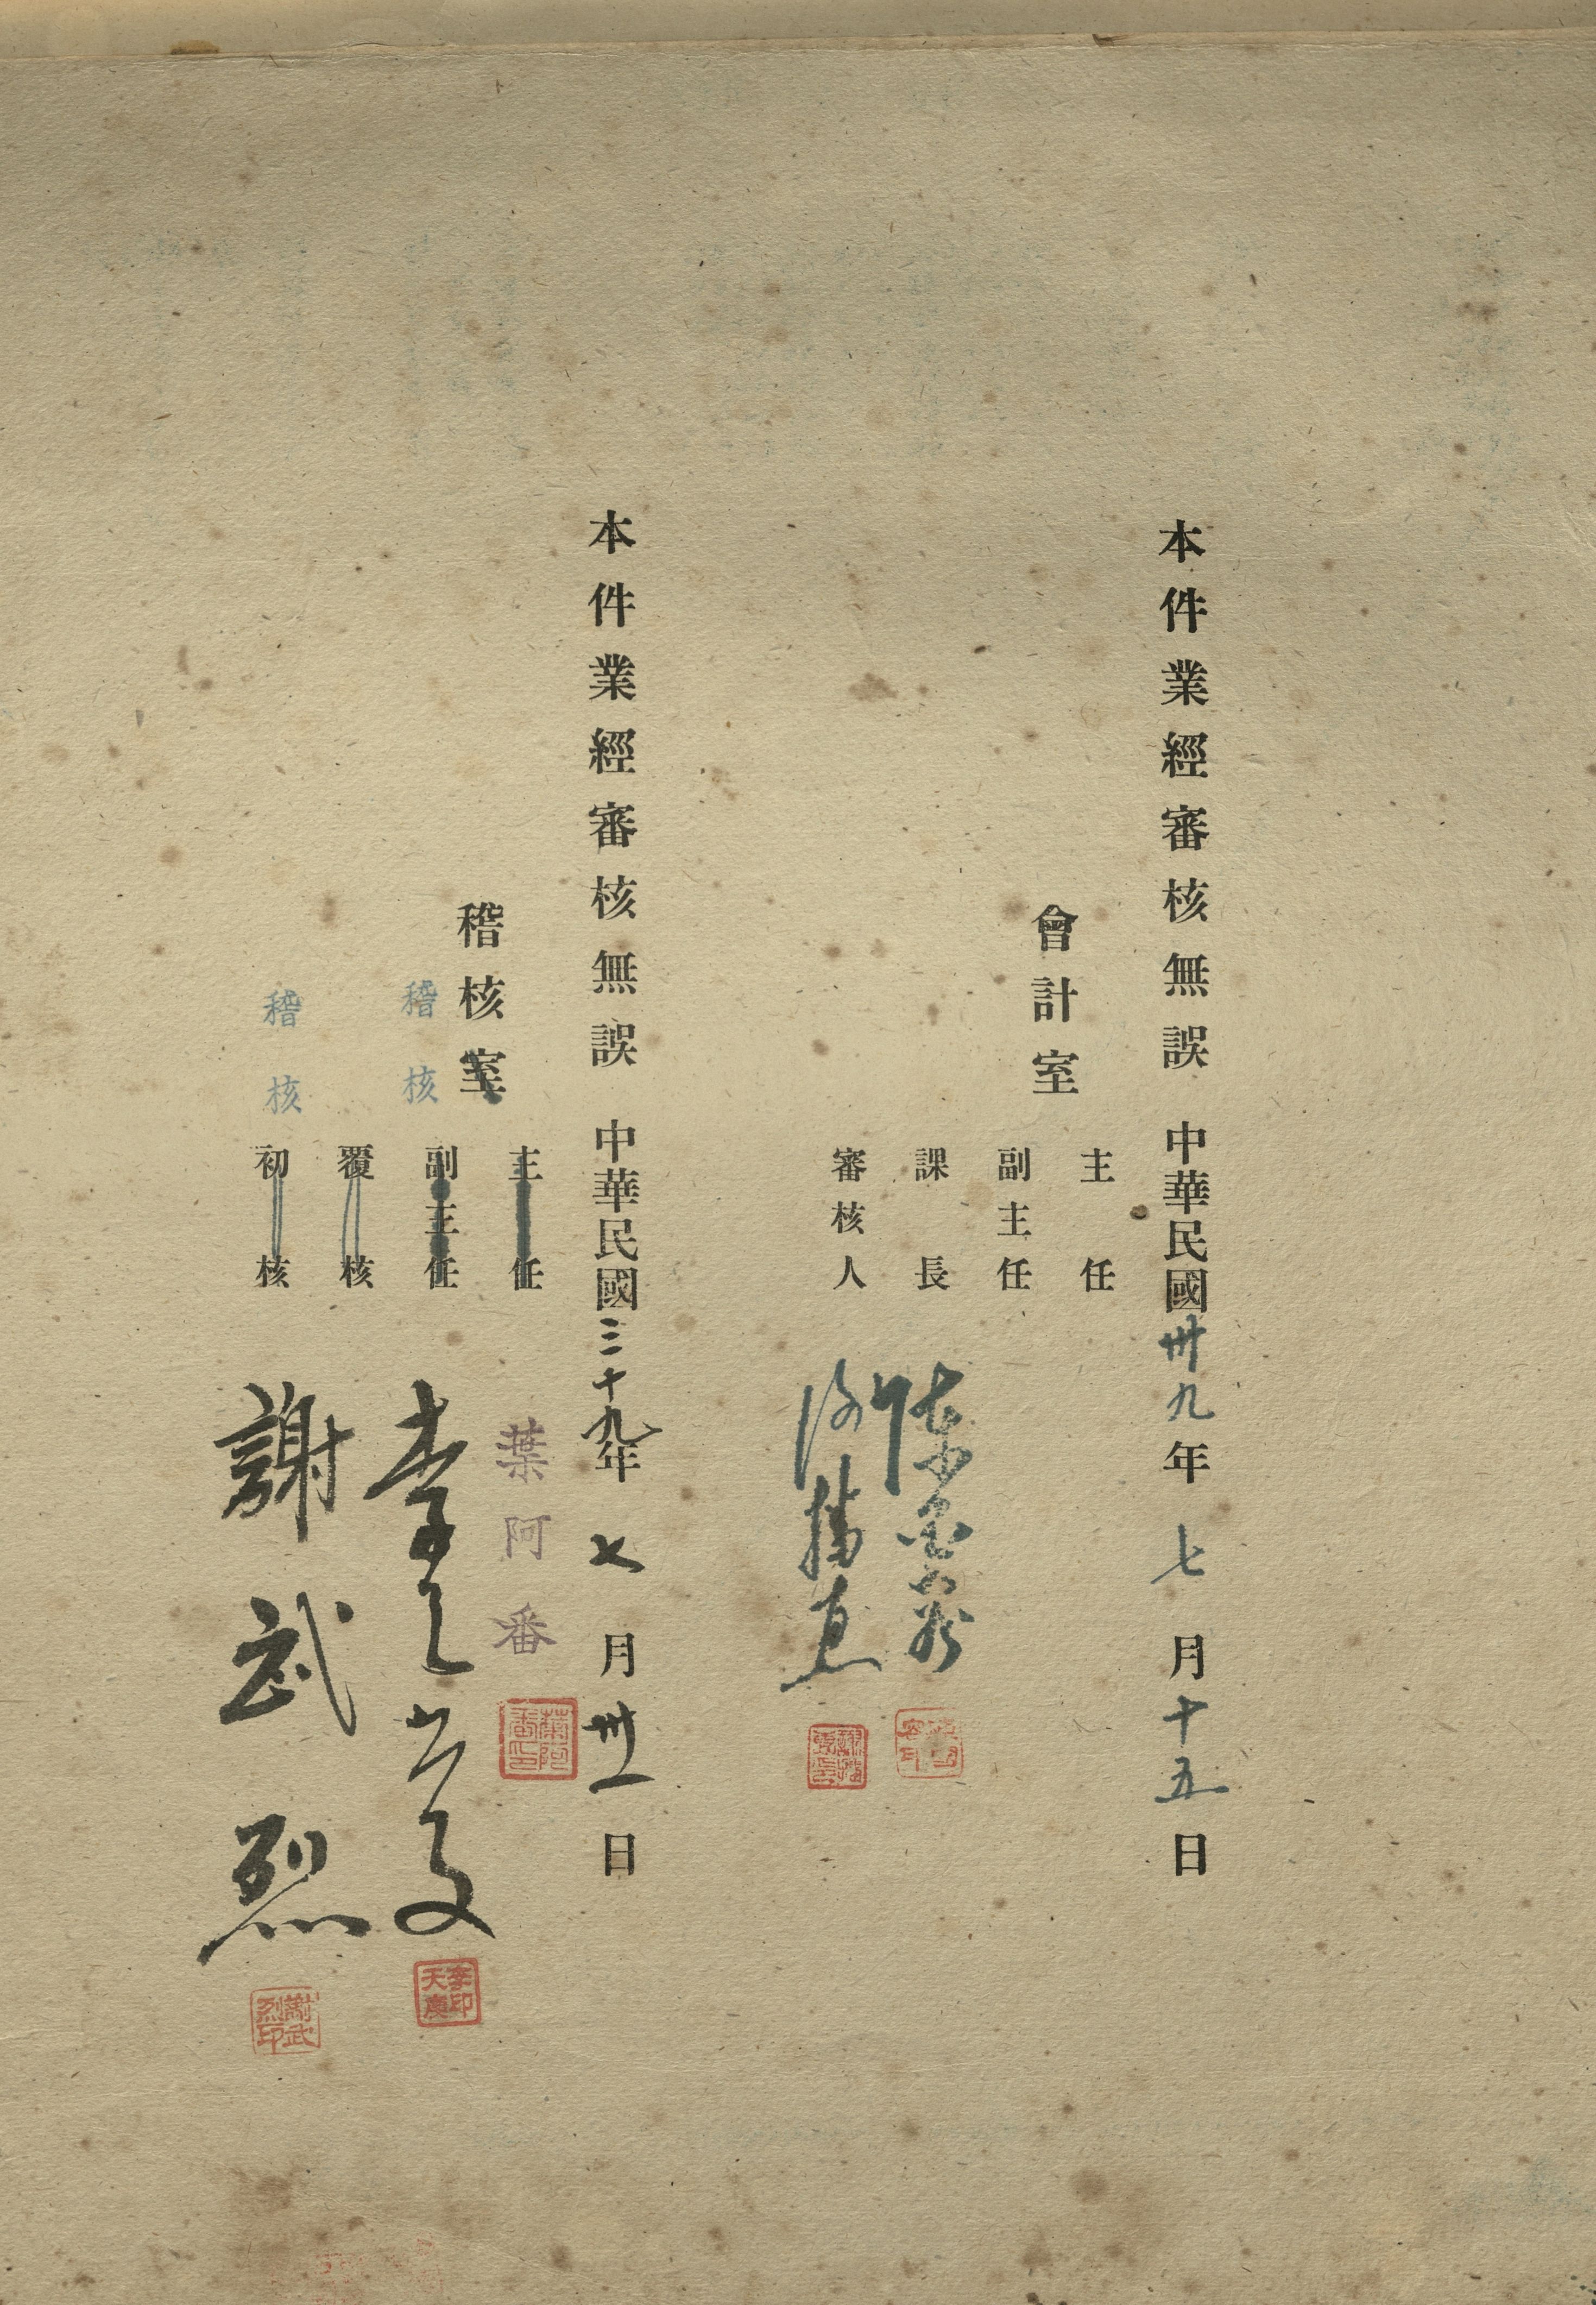 本件業經審核無誤 中華民國卅九年七月十五日
會計室
主任
副主任
課長
審核人
本件業經審核無誤 中華民國三十九年七月卅一日
稽核室
主任 葉阿番
葉阿番印
副主任
稽核
李天慶
李印天慶
覆核
初核
稽核
謝武烈
謝武烈印